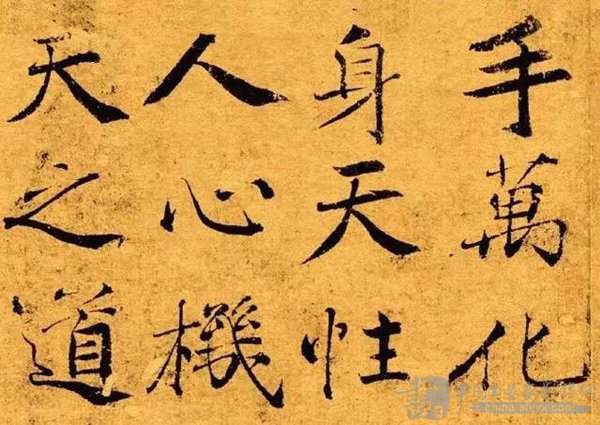 手萬化
身天性
人心機
天之道
china-shfyx.com